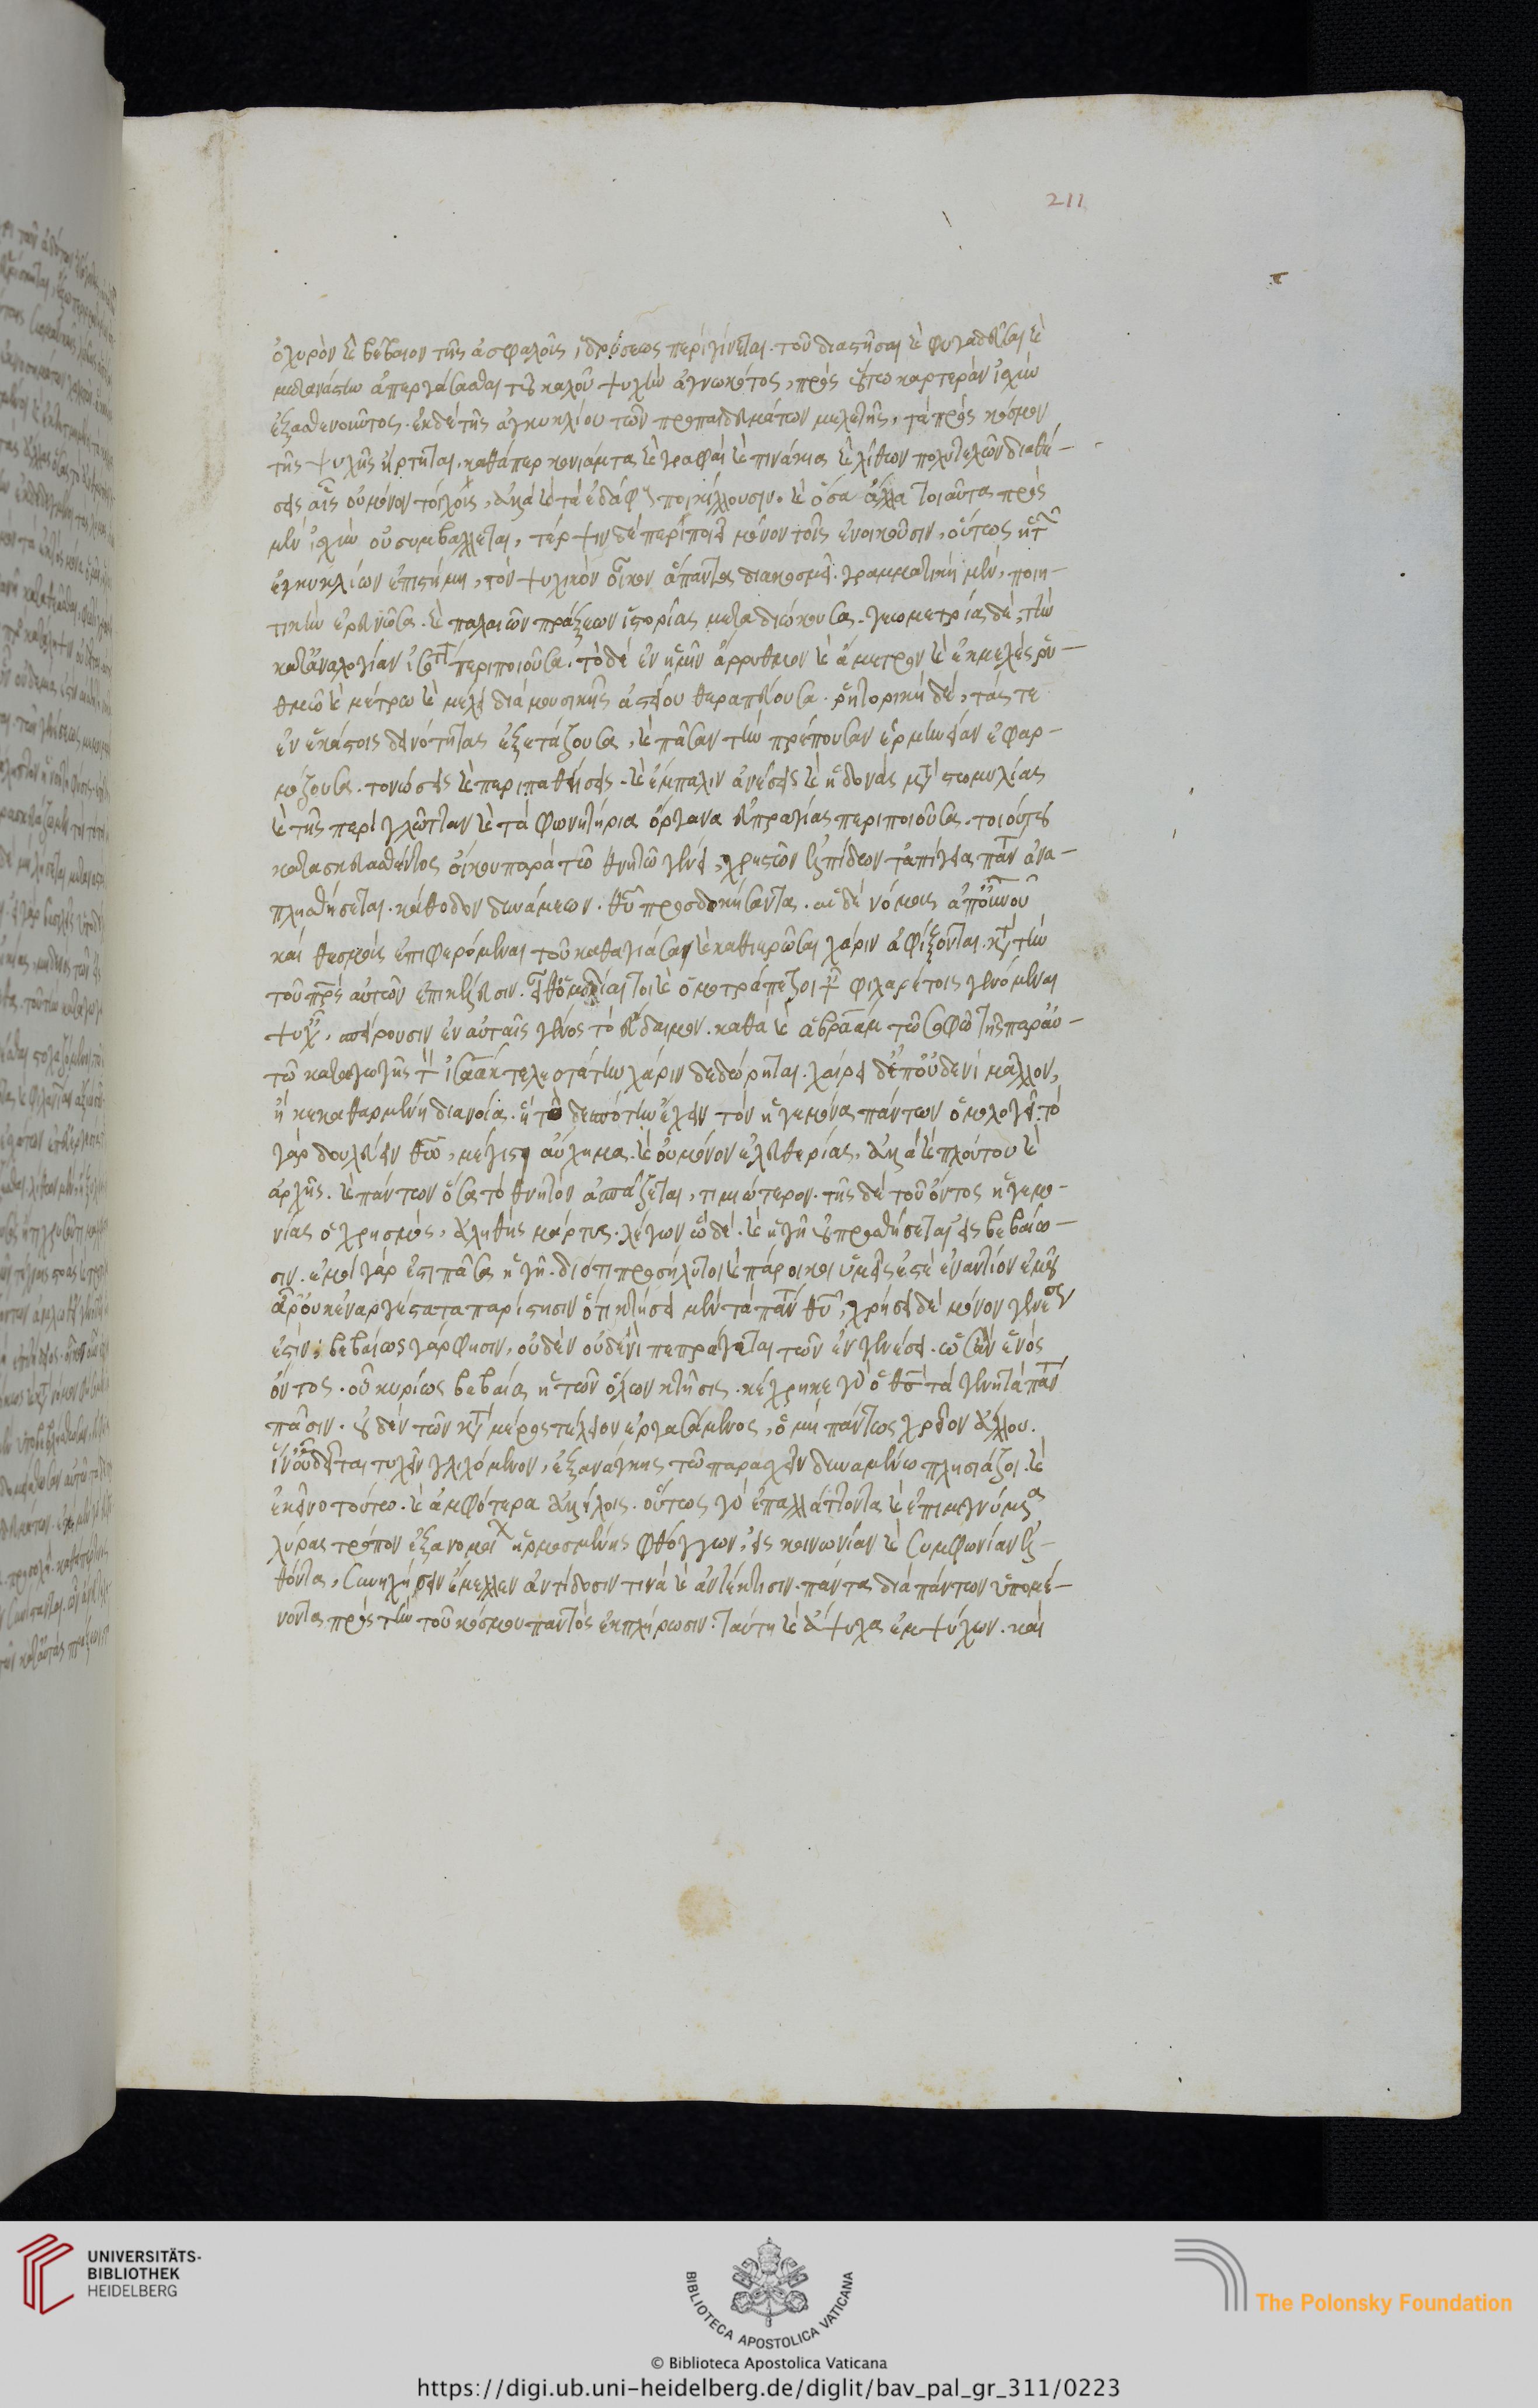 ὀχυρὸν καὶ βέβαιον τῆς ἀσφαλοῦς ἱδρύσεως περιγίνεται. τοῦ διαστῆσαι καὶ φυγαδεῦσαι καὶ
μετανάστην ἀπεργάσασθαι τὴν καλοῦ ψυχὴν ἐγνωκότος, πρὸς οὕτω καρτερὰν ἰσχὺν
ἐξασθενοῦντος. ἐκ δὲ τῆς ἐγκυκλίου τῶν προπαιδευμάτων μελέτης, τὰ πρὸς κόσμον
τῆς ψυχῆς ἤρτηται. καθάπερ κονιάματα καὶ γραφαὶ καὶ πινάκια καὶ λίθων πολυτελῶν διαθέ-
σεις αἷς οὐ μόνον τοίχοις, ἀλλὰ καὶ τὰ ἐδάφη ποικίλλουσιν. καὶ ὅσα ἄλλα τοιαῦτα πρὸς
μὲν ἰσχὺν οὐ συμβάλλεται, τέρψιν δὲ περιποιεῖ μόνον τοῖς ἐνοικοῦσιν, οὕτως ἡ τῶν
ἐγκυκλίων ἐπιστήμη, τὸν ψυχικὸν οἶκον ἅπαντα διακοσμεῖ. γραμματικὴ μὲν, ποιη-
τικὴν ἐρευνῶσα. καὶ παλαιῶν πράξεων ἱστορίας μεταδιώκουσα. γεωμετρία δὲ, τὴν
κατ' ἀναλογίαν ἰσότητα περιποιοῦσα. τὸ δὲ ἐν ἡμῖν ἄρρυθμον καὶ ἄμετρον καὶ ἐκμελὲς ῥυ-
θμῶ καὶ μέτρω καὶ μέλει διὰ μουσικῆς ἀστείου θεραπεύουσα. ῥητορικὴ δὲ, τάς τε
ἐν ἑκάστοις δεινότητας ἐξετάζουσα, καὶ πᾶσαν τὴν πρέπουσαν ἑρμηνείαν ἐφαρ-
μόζουσα. τονώσεις καὶ περιπαθήσεις. καὶ ἔμπαλιν ἀνέσεις καὶ ἡδονὰς μετὰ στωμυλίας
καὶ τῆς περὶ γλῶτταν καὶ τὰ φωνητήρια ὄργανα εὐπραγίας περιποιοῦσα. τοιούτου
κατασκευασθέντος οἴκου παρὰ τῶ θνητῶ γένει, χρηστῶν ἐλπίδων τἀπίγεια πάντα ἀνα-
πλησθήσεται. κάθοδον δυνάμεων θεοῦ προσδοκήσαντα. αἱ δὲ νόμους ἀπ' οὐρανοῦ
καὶ θεσμοὺς ἐπιφερόμεναι τοῦ καθαγιάσαι καὶ καθιερῶσαι χάριν ἀφίξονται. κατὰ τὴν
τοῦ πατρὸς αὐτῶν ἐπικέλευσιν. εἶθ' ὁμοδίαιτοι καὶ ὁμοτράπεζοι ταῖς φιλαρέτοις γενόμεναι
ψυχαῖς, σπείρουσιν ἐν αὐταῖς γένος τὸ εὔδαιμον. καθὰ καὶ ἀβραὰμ τῶ σοφῶ τῆς παρ' αὐ-
τῶ καταγωγῆς τὸν ἰσαὰκ τελειοτάτην χάριν δεδώρηται. χαίρει δ' ἐπ' οὐδενὶ μᾶλλον,
ἢ κεκαθαρμένη διανοία. ἢ τῶ δεσπότην ἔχειν τὸν ἡγεμόνα πάντων ὁμολογεῖ. τὸ
γὰρ δουλεύειν θεῶ, μέγιστον αὔχημα. καὶ οὐ μόνον ἐλευθερίας, ἀλλὰ καὶ πλούτου καὶ
ἀρχῆς. καὶ πάντων ὅσα τὸ θνητὸν ἀσπάζεται, τιμιώτερον. τῆς δὲ τοῦ ὄντος ἡγεμο-
νίας ὁ χρησμὸς, ἀληθὴς μάρτυς. λέγων ὧδε. καὶ ἡ γῆ οὐ πραθήσεται εἰς βεβαίω-
σιν. ἐμοὶ γάρ ἐστι πᾶσα ἡ γῆ. διότι προσήλυτοι καὶ πάροικοι ὑμεῖς ἐστὲ ἐναντίον ἐμοῦ
ἆρ' οὐκ ἐναργέστατα παρίστησιν ὅτι κτήσει μὲν τὰ πάντα θεοῦ, χρήσει δὲ μόνον γενέσεως
ἐστίν; βεβαίως γάρ φησιν, οὐδὲν οὐδενὶ πεπράσεται τῶν ἐν γενέσει. ὡσὰν ἑνὸς
ὄντος. οὗ κυρίως βεβαία ἡ τῶν ὅλων κτῆσις. κέχρηκε γὰρ ὁ θεὸς τὰ γενητὰ πάντα
πᾶσιν. οὐδὲν τῶν κατὰ μέρος τέλειον ἐργασάμενος, ὃ μὴ πάντως χρεῖον ἄλλου.
ἵν' οὗ δεῖται τυχεῖν γλιχόμενον, ἐξ ἀνάγκης τῶ παρασχεῖν δυναμένω πλησιάζοι. καὶ
ἐκεῖνο τούτω. καὶ ἀμφότερα ἀλλήλοις. οὕτως γὰρ ἐπαλλάττοντα καὶ ἐπιμιγνύμενα
λύρας τρόπον ἐξ ἀνομοίων ἡρμοσμένης φθόγγων, εἰς κοινωνίαν καὶ συμφωνίαν ἐλ-
θόντα, συνηχήσειν ἔμελλεν ἀντίδοσίν τινα καὶ ἀντέκτισιν. πάντα διὰ πάντων ὑπομέ-
νοντα πρὸς τὴν τοῦ κόσμου παντὸς ἐκπλήρωσιν. ταύτη καὶ ἄψυχα ἐμψύχων. καὶ
211
UNIVERSITÄTS-
BIBLIOTHEK
HEIDELBERG
BIBLIOTECA APOSTOLICA VATICANA
The Polonsky Foundation
© Biblioteca Apostolica Vaticana
https://digi.ub.uni-heidelberg.de/diglit/bav_pal_gr_311/0223